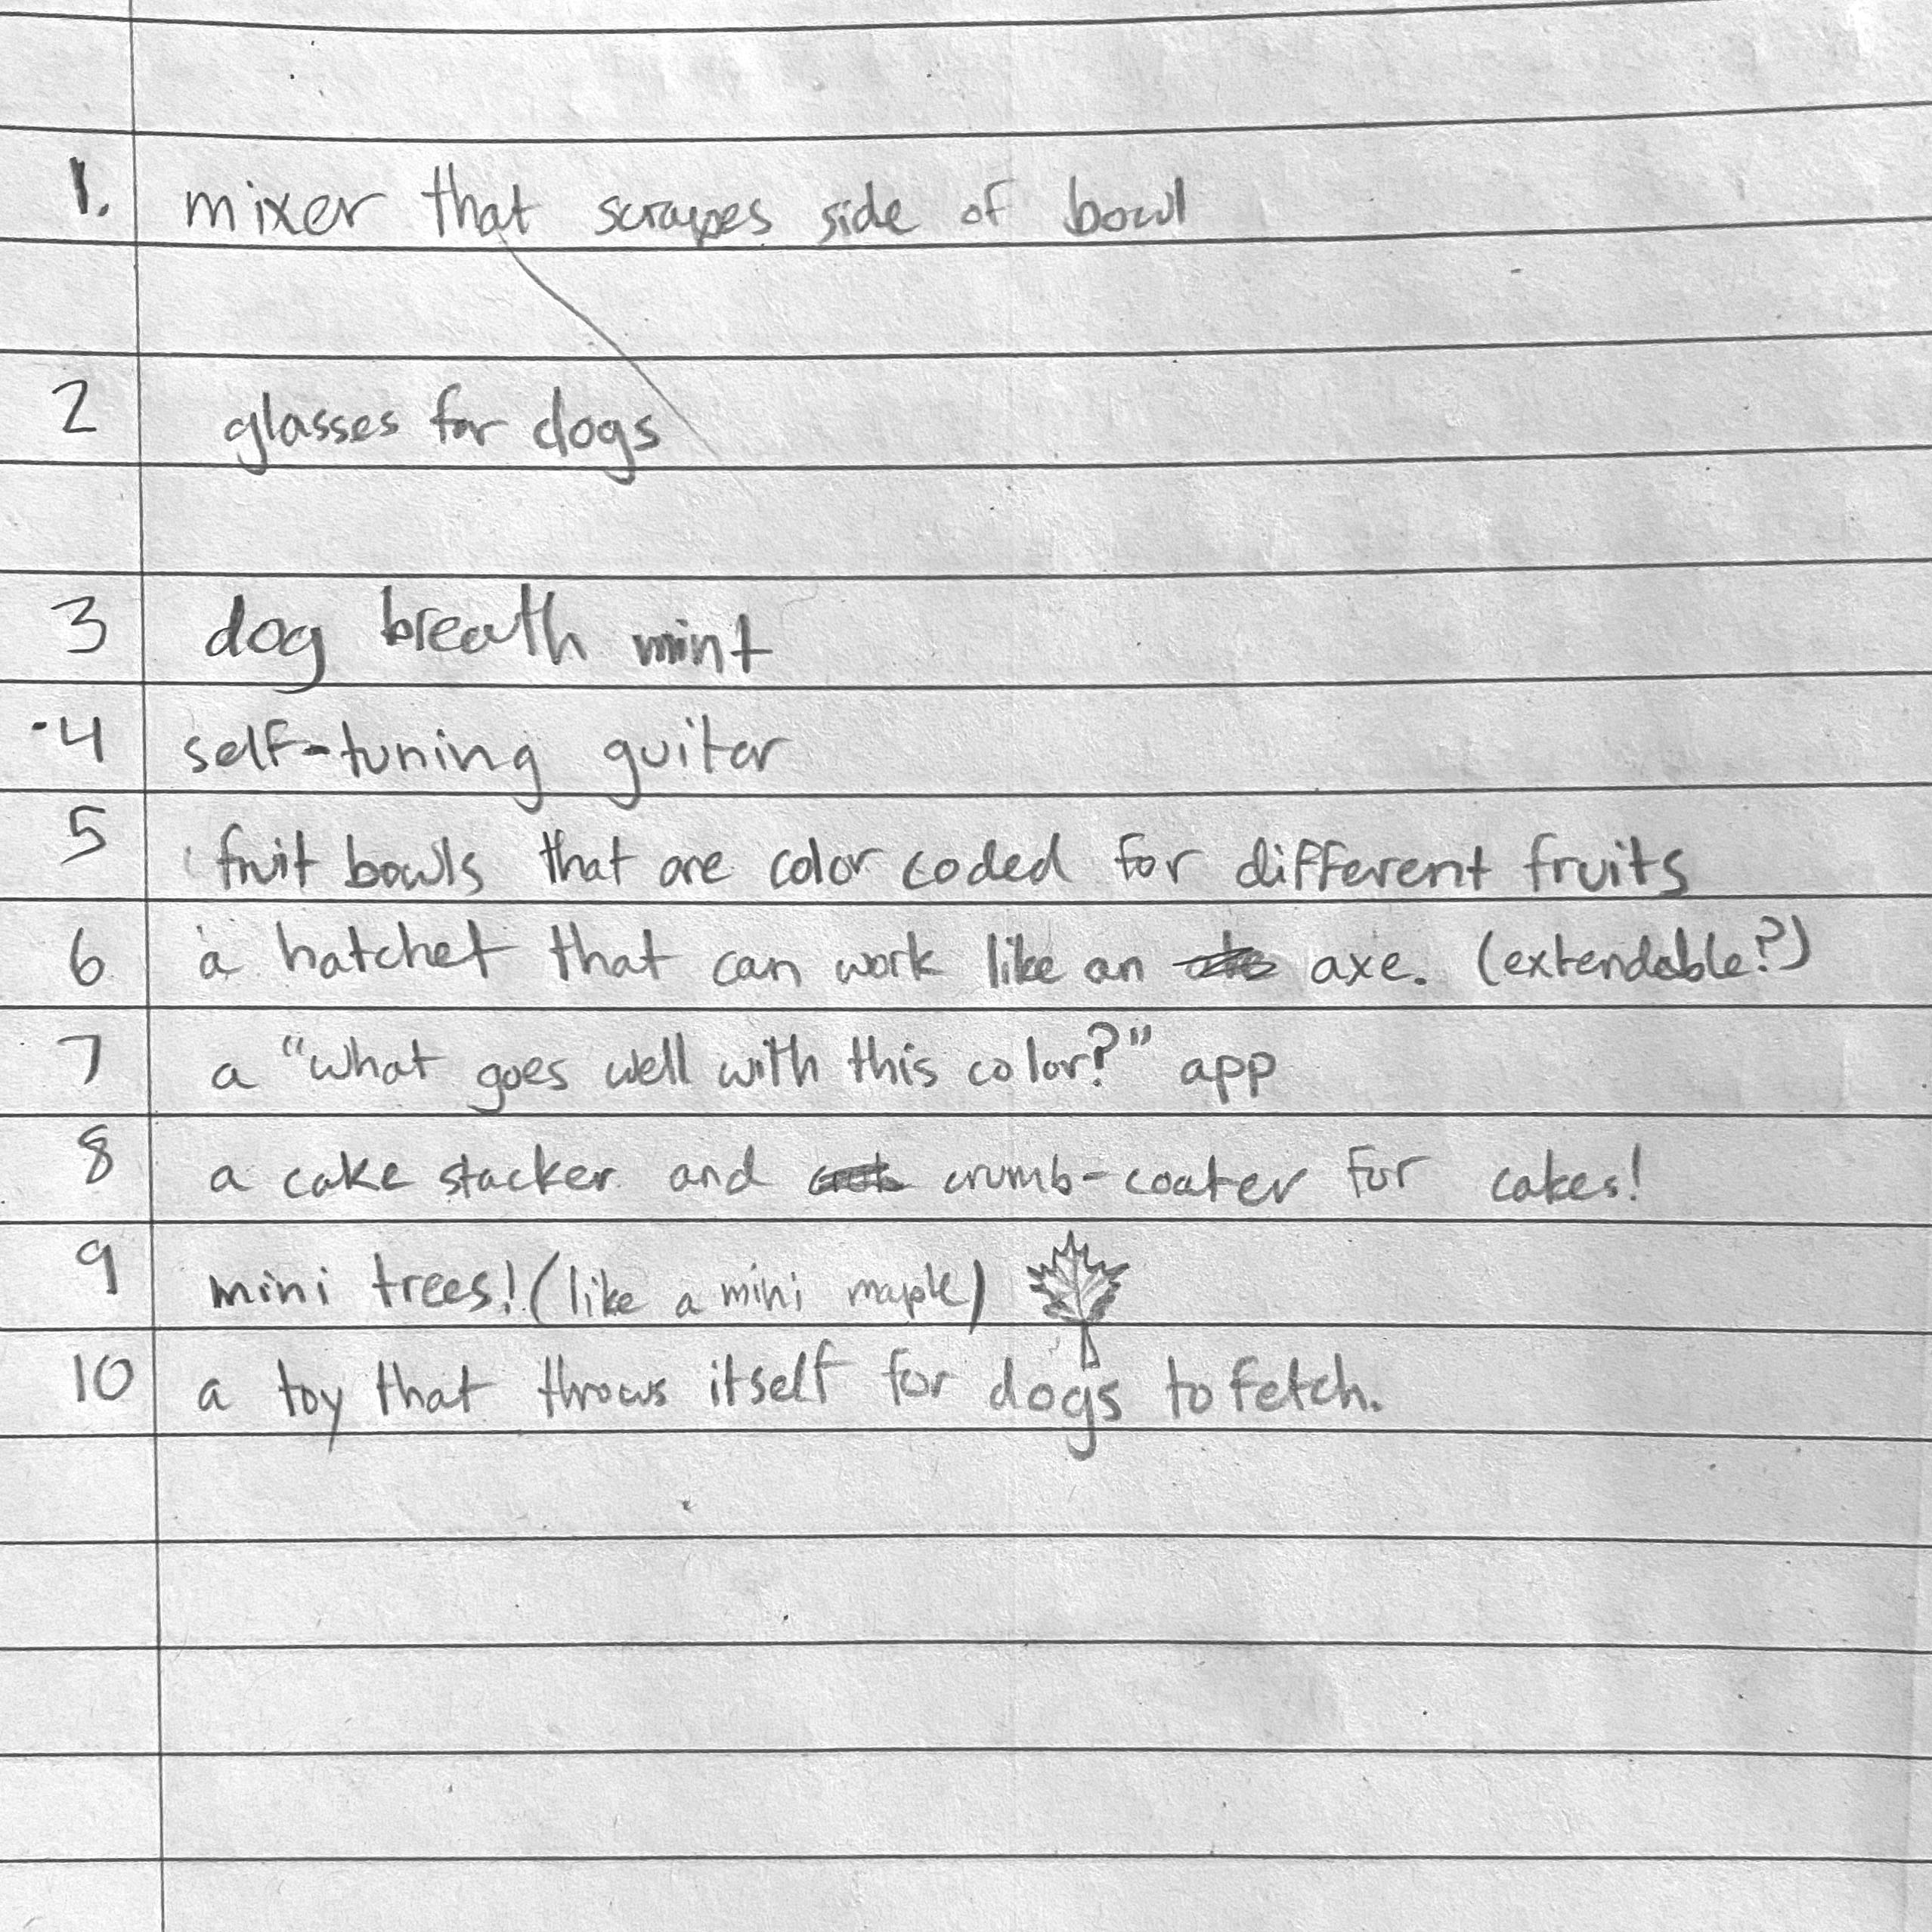 1. mixer that scrapes side of bowl
2 glasses for dogs
3 dog breath mint
4 self-tuning guitar
5 fruit bowls that are color coded for different fruits
6 a hatchet that can work like an axe. (extendable?)
7 a "what goes well with this color?" app
8 a cake stacker and crumb-coater for cakes!
9 mini trees! (like a mini maple)
10 a toy that throws itself for dogs to fetch.